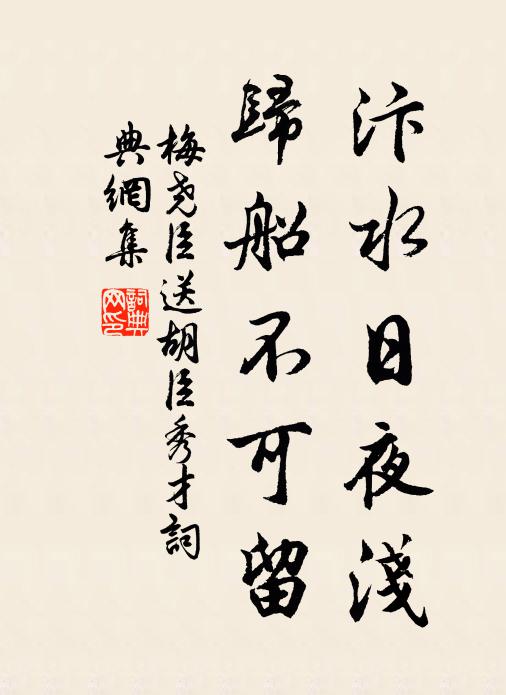 汴水日夜淺
歸船不可留
梅尧臣送胡臣秀才詞
典網集
詞典
网印